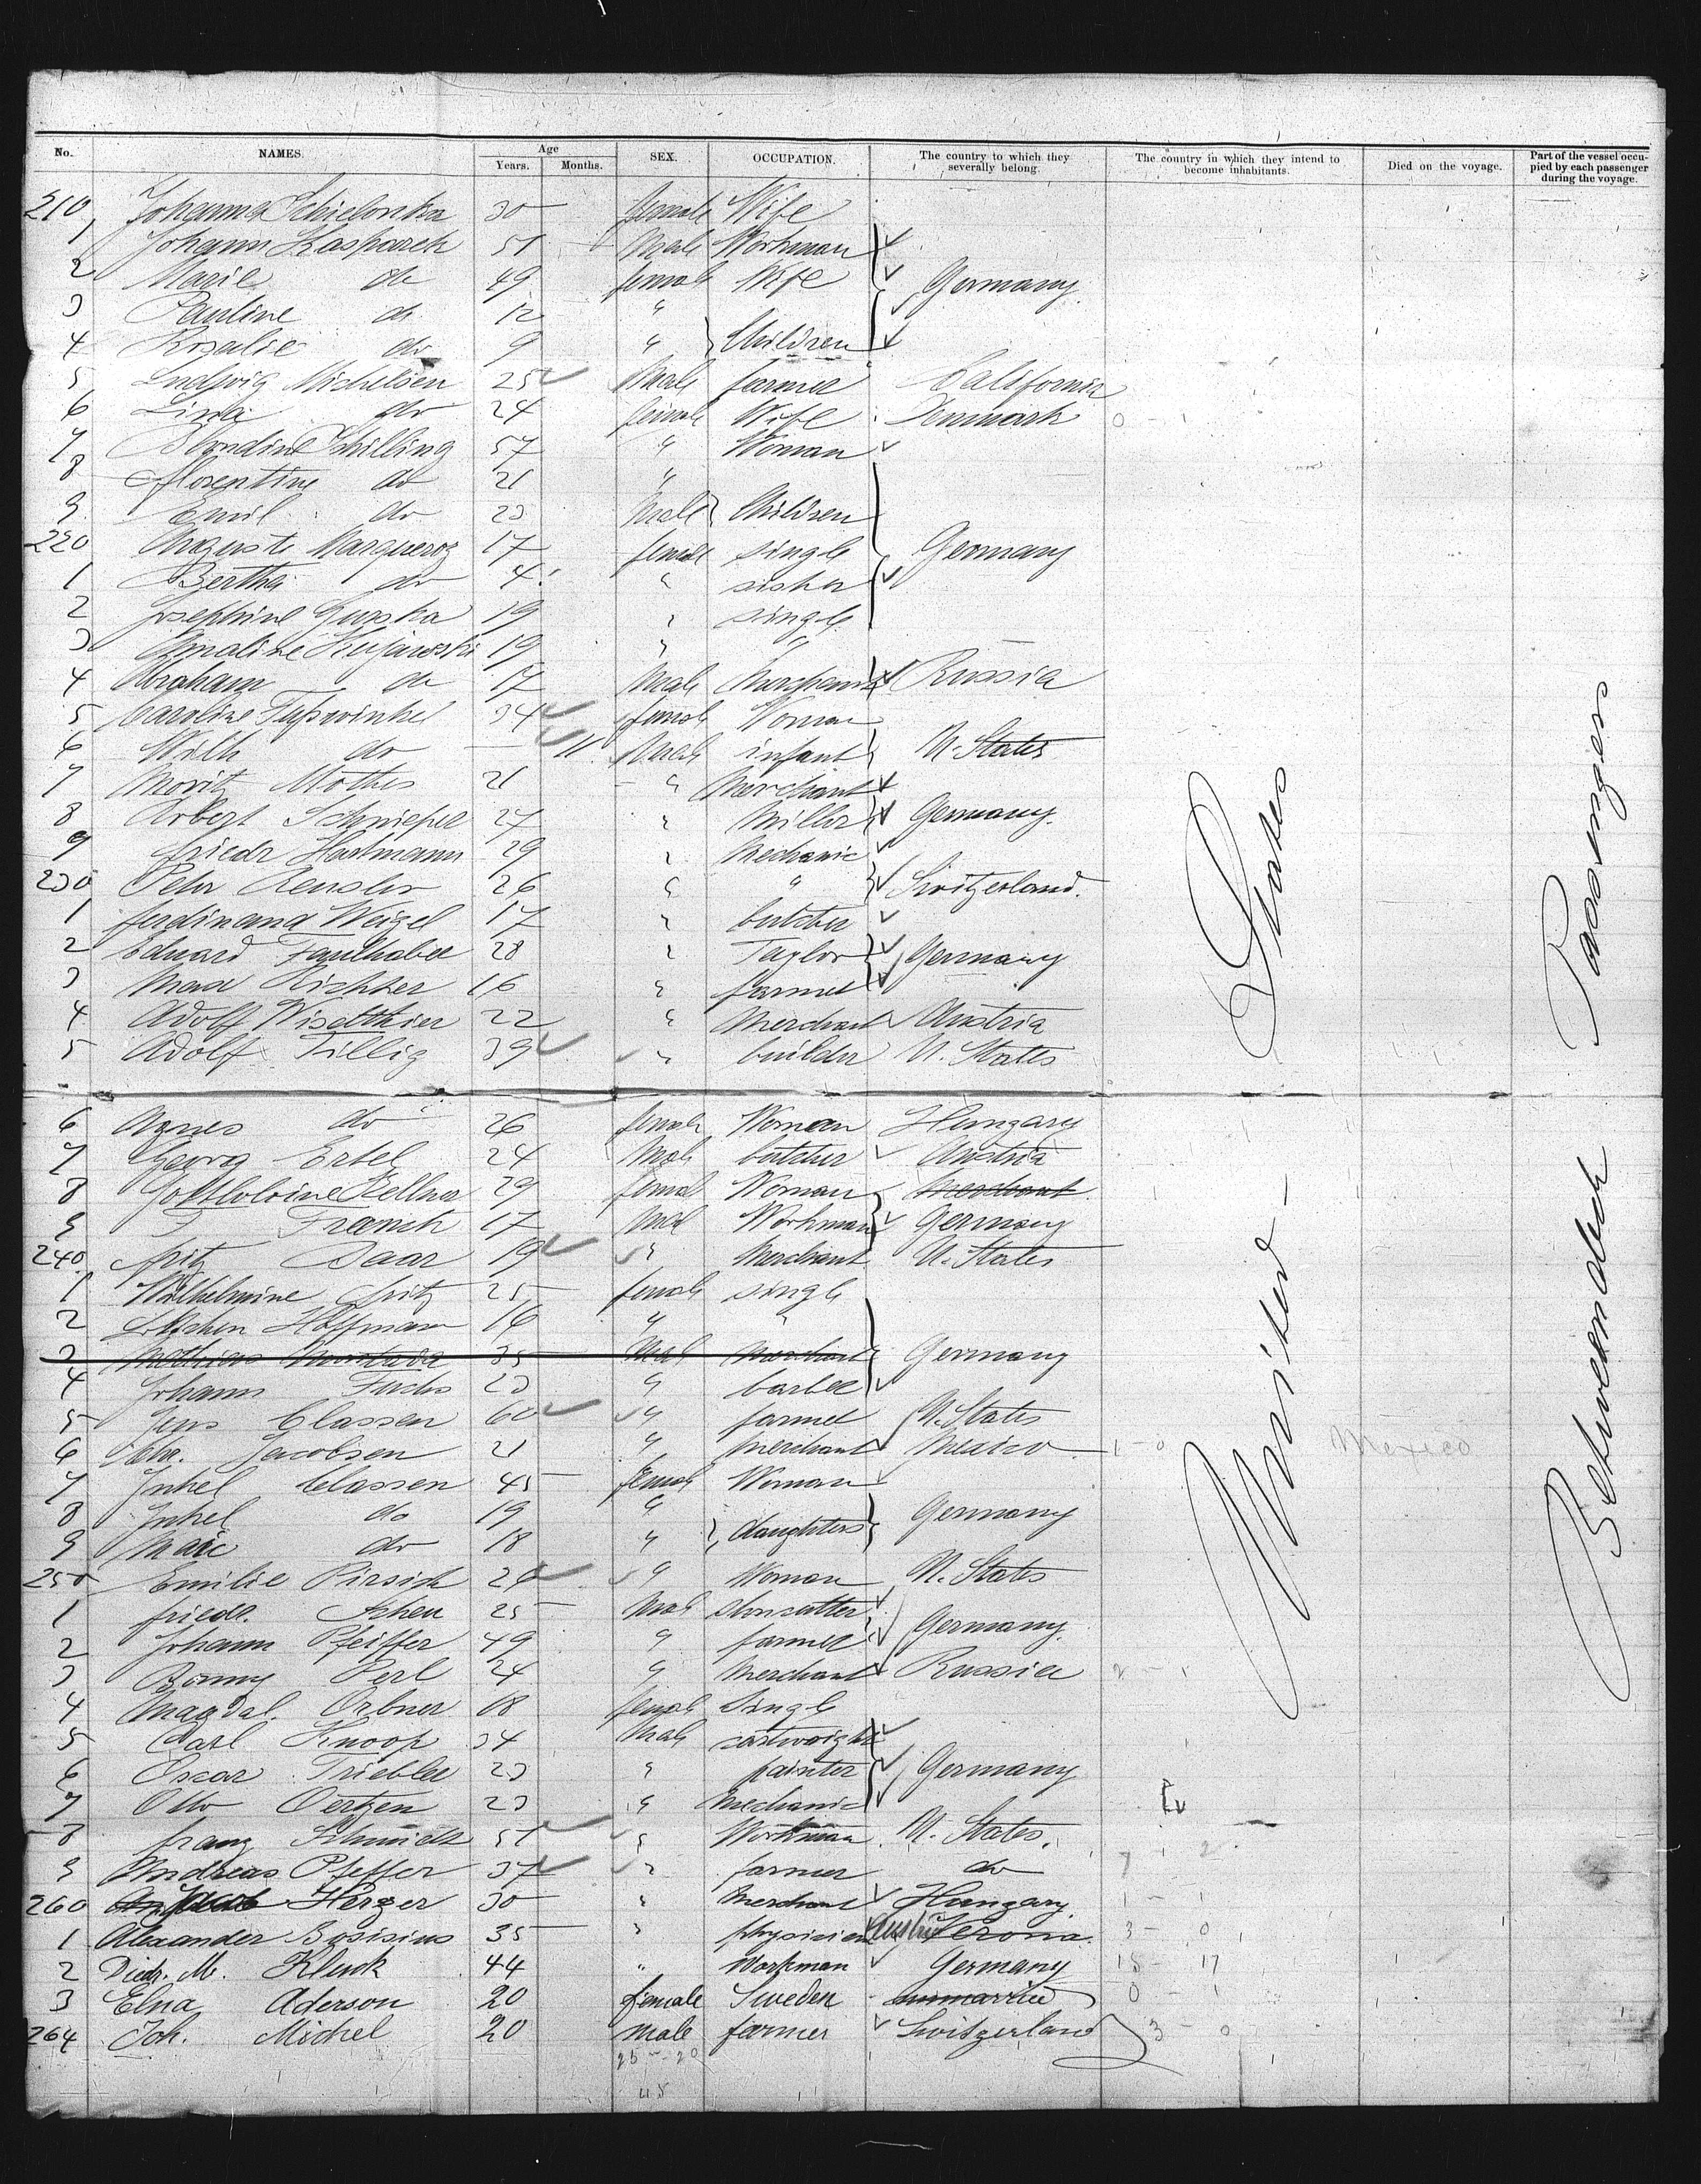 No. NAMES. Age Years. Months. SEX. OCCUPATION. The country to which they severally belong. The country in which they intend to become inhabitants. Died on the voyage. Part of the vessel occupied by each passenger during the voyage.
210 Johanna 30 female Wife
1 Johann Kasparek 51 Male Workman
2 Marie do 49 female Wife Germany
3 Pauline do 12 "
4 Rosalie do 9 " Children
5 Ludwig Michelsen 25 Male farmer California
6 Lina do 24 female Wife Denmark 0 - 1
7 Blondine Schilling 57 " Woman
8 Florentine do 21 "
9 Emil do 23 Male Children
220 Auguste 17 female single Germany
1 Bertha do 4 " sister
2 Josephine Gurska 19 " single
3 Amaline Kujawski 19 " "
4 Abraham do 17 Male Merchant Russia
5 Caroline 34 female Woman
6 Wilh do 11 Male infant U. States
7 Moritz Mothes 21 " Merchant
8 27 " Miller Germany.
9 friedr Hartmann 29 " Mechanic
230 Peter 26 " " Switzerland.
1 ferdinand Weigel 17 " butcher
2 Eduard Faulhaber 28 " Taylor Germany
3 Max Richter 16 " farmer
4 Adolf 22 " Merchant Austria
5 Adolf Tillig 39 " builder U. States
6 Agnes do 26 female Woman Hungary
7 Georg Ertel 24 Male butcher Austria
8 29 female Woman Merchant
9 F Franck 17 Male Workman Germany
240 fritz Saar 19 " Merchant U. States
1 Wilhelmine fritz 25 female single
2 Hoffmann 16 " "
3 35 Male Merchant Germany
4 Johann Fuchs 23 " barber
5 Jens Classen 60 " farmer U. States
6 Chr. Jacobsen 21 " merchant Mexico 1 - 0 Mexico
7 Inkel Classen 45 female Woman
8 Inkel do 19 " Germany
9 Marie do 18 " daughters
250 Emilie Pirsich 24 " Woman U. States
1 friedr. 25 Male Germany
2 Johann Pfeiffer 49 " farmer
3 Perl 24 " Merchant Russia 2 - 1
4 Magdal. Orbner 18 female Single
5 Carl Knoop 34 Male
6 Oscar Triebler 23 " painter Germany
7 Otto Oertzen 23 " Mechanic
8 franz Schmidt 51 " Workman U. States.
9 Andreas Pfeffer 37 " farmer do 7 - 2
260 Jacob Herzer 30 " Merchant Hungary. 1 - 1
1 Alexander Bosisius 35 " physician Austria Verona. 3 - 0
2 Diedr. M. Kluck 44 " Workman Germany 18 - 17
3 Elna Aderson 20 female Sweden unmarried 0 - 1
264 Joh. Michel 20 male farmer Switzerland 3 - 0
25 - 20
45
United States
Betweendeck Passengers